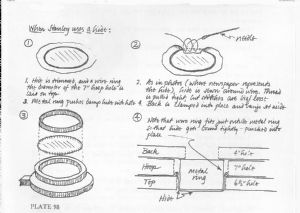 When Stanley uses a hide:
① ② needle
1. Hide is trimmed, and a wire ring
the diameter of the 7" hoop hole is
laid on top.
2. As in photo (where newspaper represents
the hide), hide is sewn around wire. Thread
is pulled tight, but stitches are left loose.
3. Metal ring pushes damp hide into hole
4. Back is clamped into place and banjo set aside
③ ④ Note that wire ring fits just outside metal ring
so that hide gets bound tightly - pushed into
place
Back
4" hole
Hoop
metal
ring
7" hole
Top
6½" hole
Hide
PLATE 98